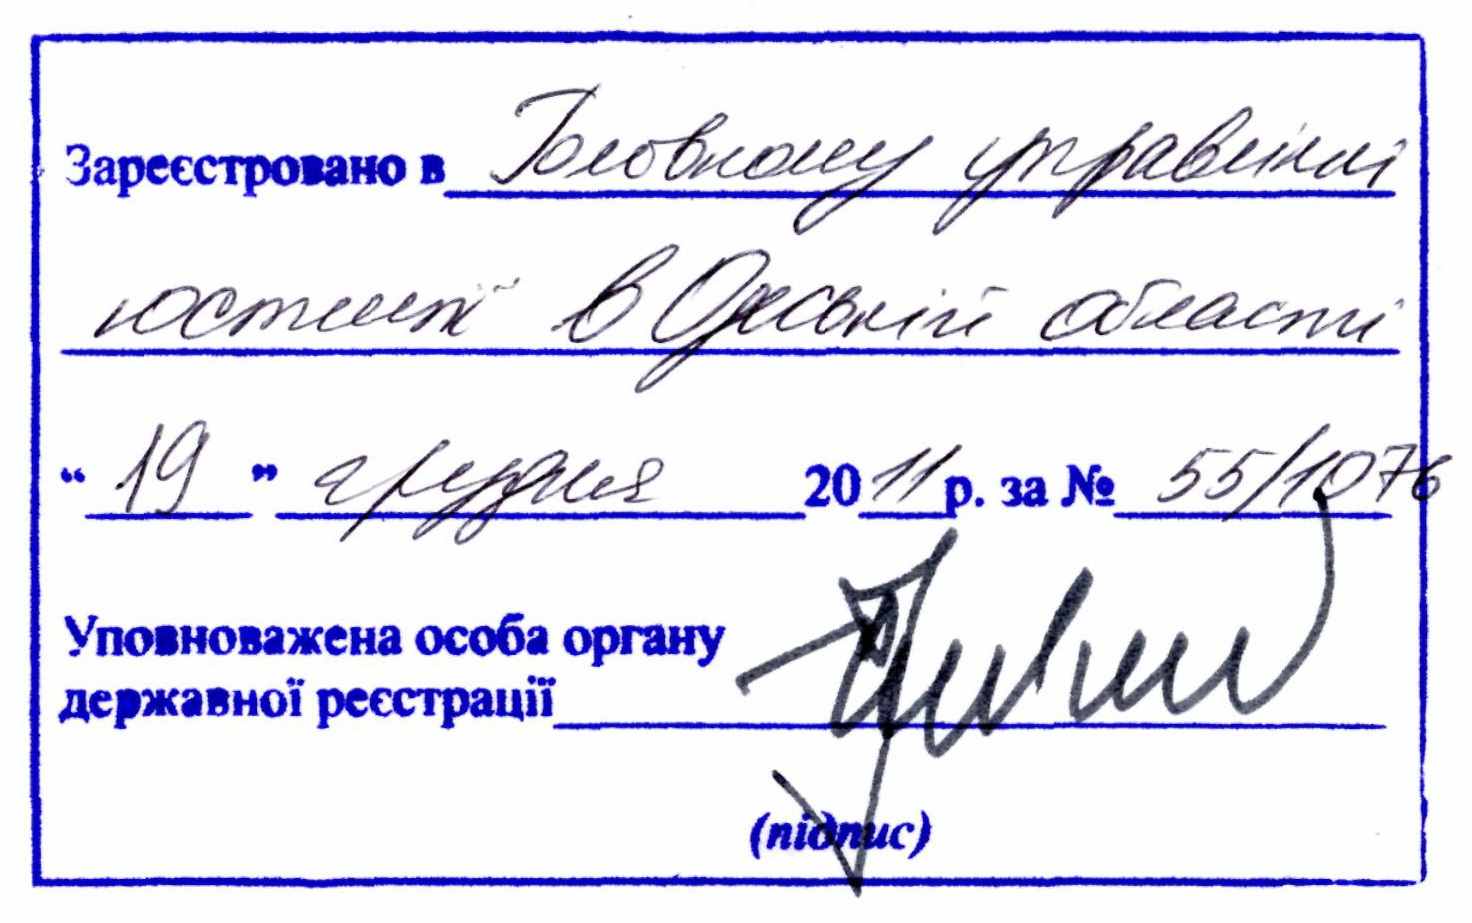 Зареєстровано в Головному управлінні
юстиції в Одеській області
“ 19 ” грудня 2011 р. за № 55/1076
Уповноважена особа органу
державної реєстрації
(підпис)